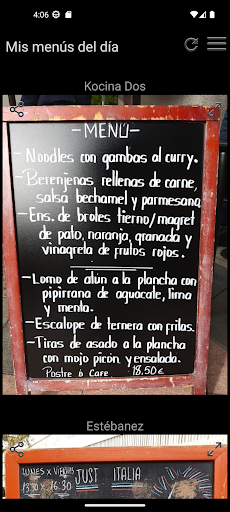 4:06
Mis menús del día
Kocina Dos
- MENÚ -
- Noodles con gambas al curry.
- Berenjenas rellenas de carne,
salsa bechamel y parmesano
- Ens. de brotes tierno/magret
de pato, naranja, granada y
vinagreta de frutos rojos.
- Lomo de atún a la plancha con
pipirrana de aguacate, lima
y menta.
- Escalope de ternera con fritas.
- Tiras de asado a la plancha
con mojo picón y ensalada.
Postre ó Café 18.50€
Estébanez
LUNES x Viernes
13:30 x 16:30
JUST ITALIA